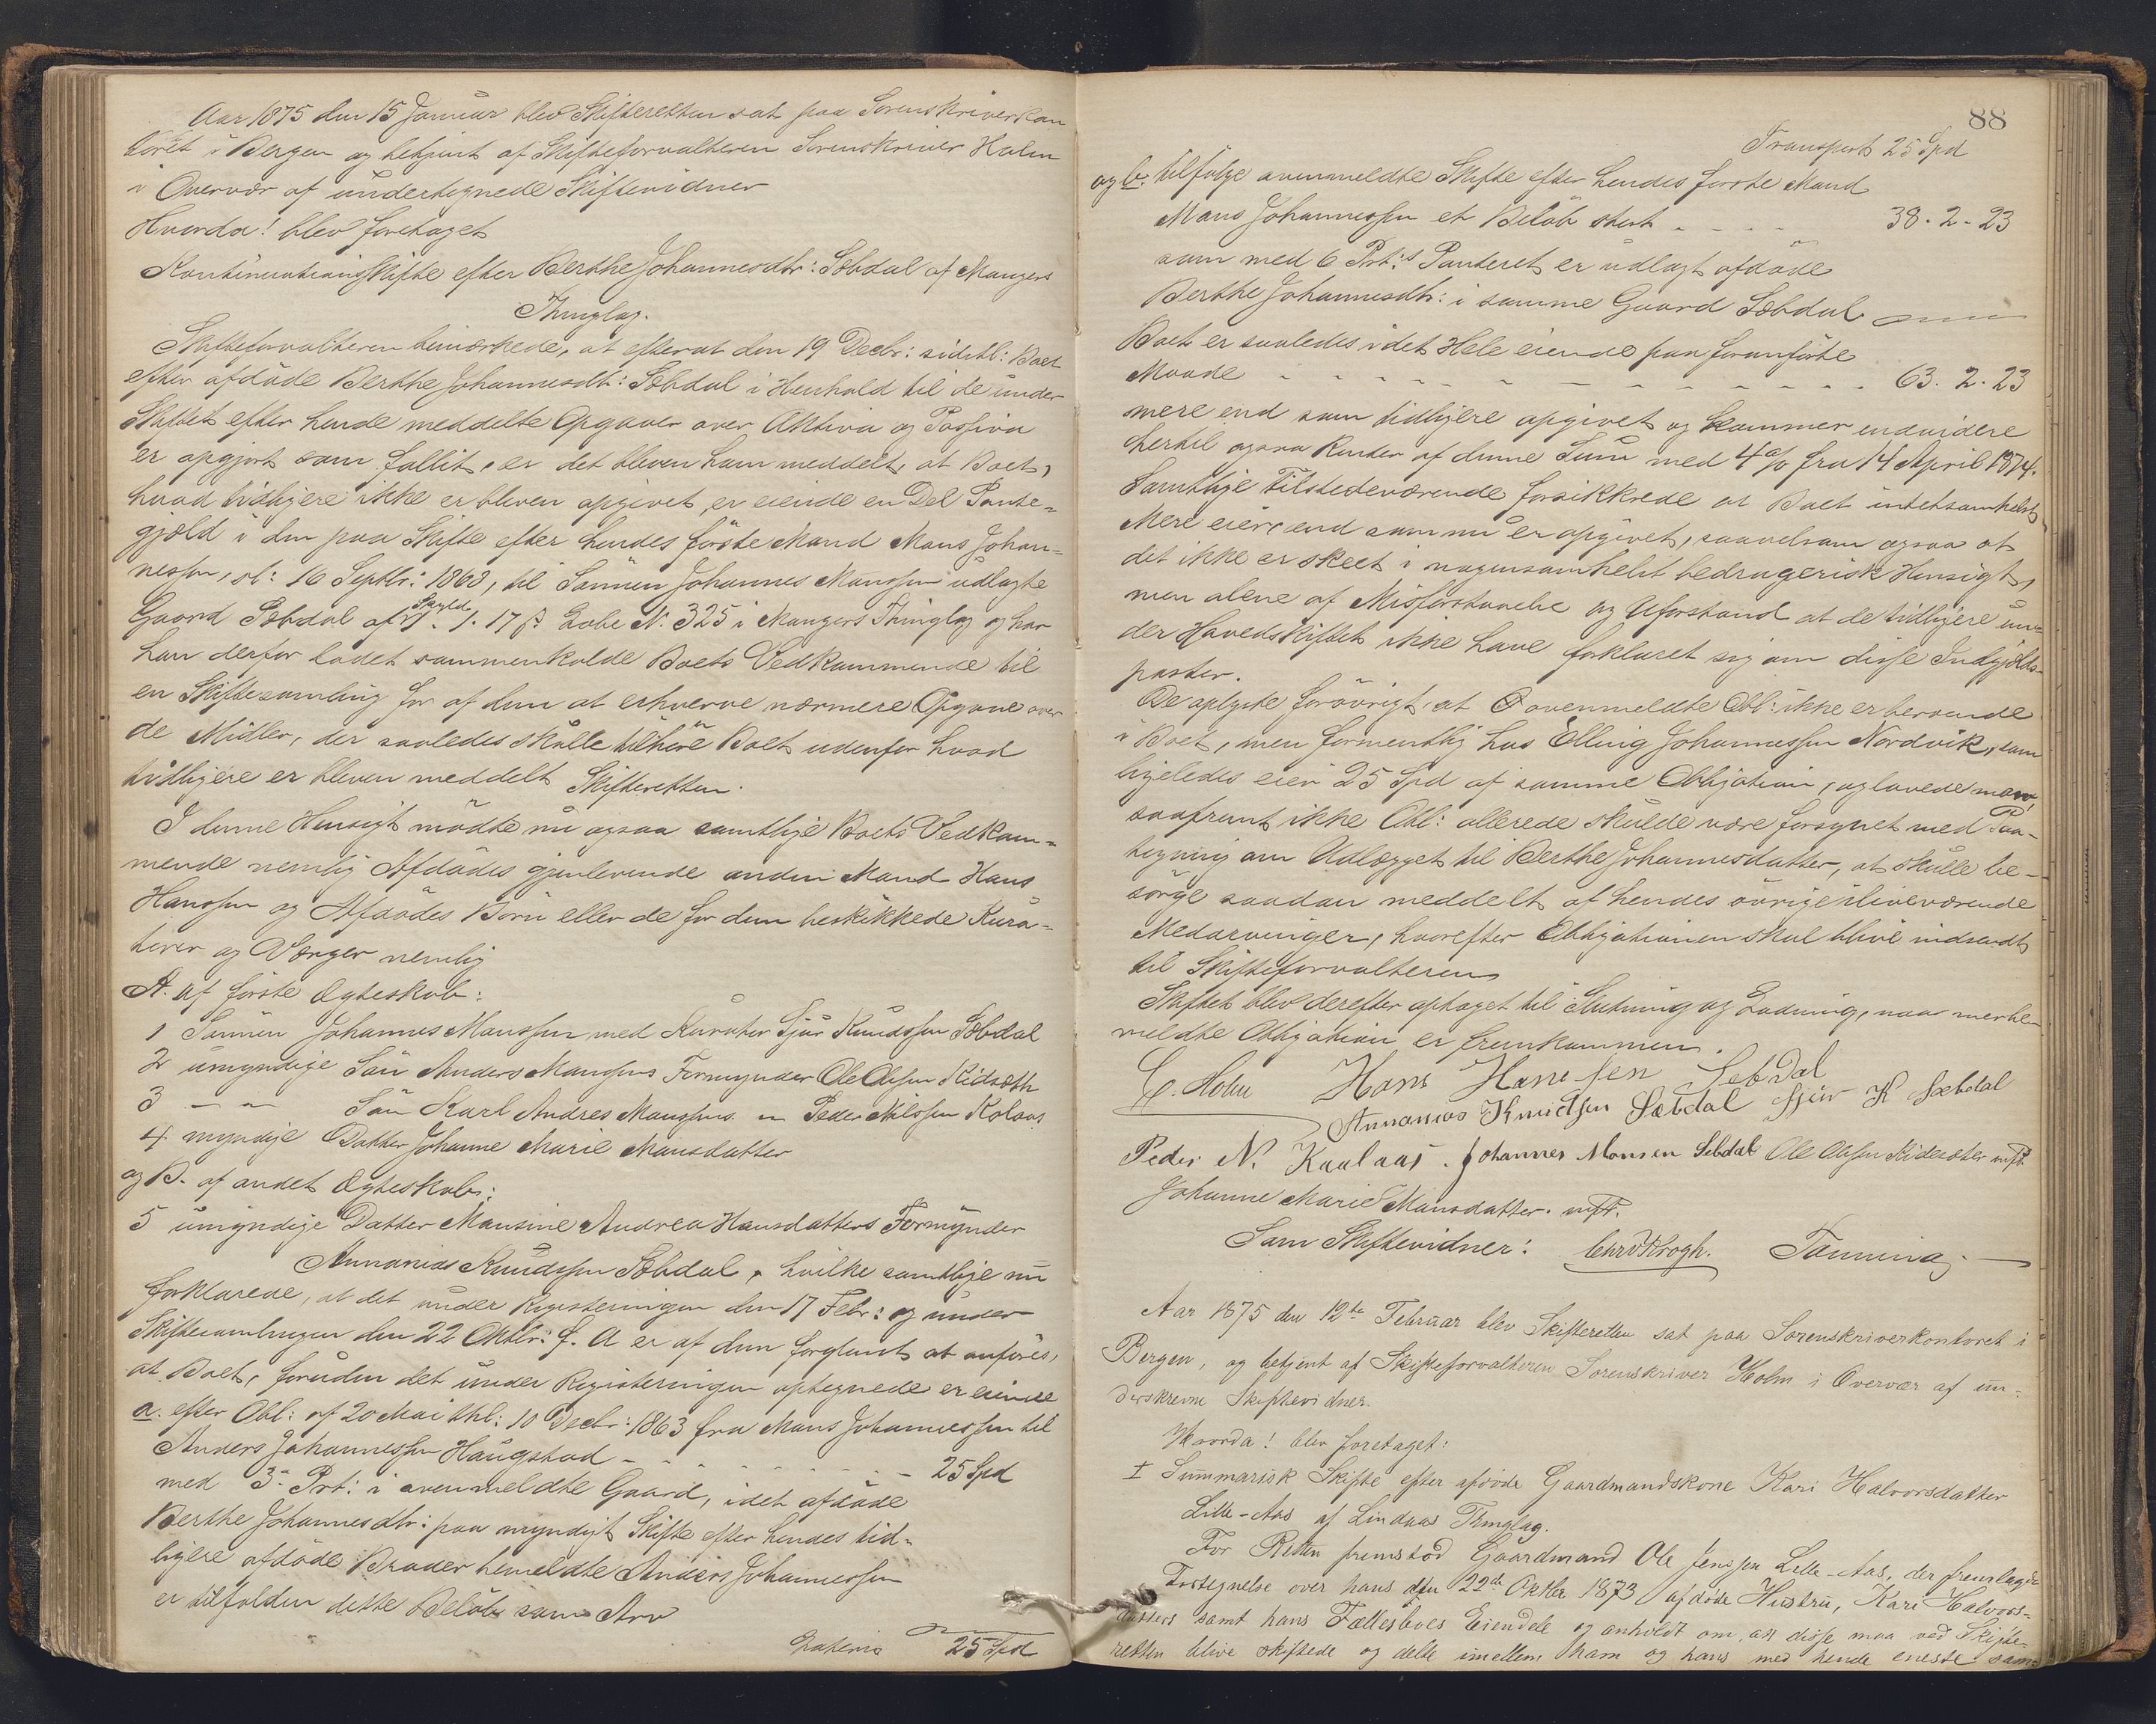 Aar 1875 den 15 Januar blev Skifteretten sat paa Sorenskriverkon
toret i Bergen og betjent af Skifteforvalteren Sorenskriver Holm
i Overvær af undertegnede Skiftevidner
Hvorda! blev foretaget
Kontinuationsskifte efter Berthe Johannesdtr: Sæbdal af Mangers
Thinglag.
Skifteforvalteren bemærkede, at efterat den 19 Decbr: sidstl: Boet
efter afdøde Berthe Johannesdtr: Sæbdal i Henhold til de under
Skiftet efter hende meddelte Opgaver over Aktiva og Passiva
er opgjort som fallit, er det bleven ham meddelt, at Boet,
hvad tidligere ikke er bleven opgivet, er eiende en Del Pante-
gjæld i den paa Skifte efter hendes første Mand Mons Johan-
nessen, sl: 16 Septbr: 1868, til Sønnen Johannes Monssen udlagte
Gaard Sæbdal af Skyld 1. 17 β. Løbe N. 325 i Mangers Thinglag og har
han derfor ladet sammenkalde Boets Vedkommende til
en Skiftesamling for af dem at erhverve nærmere Opgave over
de Midler, der saaledes skulle tilhøre Boet udenfor hvad
tidligere er bleven meddelt Skifteretten.
I denne Hensigt mødte nu ogsaa samtlige Boets Vedkom-
mende nemlig Afdødes gjenlevende anden Mand Hans
Hanssen og Afdødes Børn eller de for dem beskikkede Kura-
torer og Værger nemlig
A. af første Ægteskab:
1 Sønnen Johannes Monssen med Kurator Sjur Knudssen Sæbdal
2 umyndige Søn Anders Monssens Formynder Ole Olssen Kidsæth
3 — " — Søn Karl Andres Monssens " Peder Nilssen Kolaas
4 myndige Datter Johanne Marie Monsdatter
og B. af andet Ægteskab:
5 umyndige Datter Monsine Andrea Hansdatters Formynder
Annanias Knudssen Sæbdal, hvilke samtlige nu
forklarede, at det under Registeringen den 17 Febr: og under
Skiftesamlingen den 22 Oktbr: f. A er af dem forglemt at anføres,
at Boet, foruden det under Registeringen optegnede er eiende
a. efter Obl: af 20 Mai thl: 10 Decbr: 1863 fra Mons Johannessen til
Anders Johannessen Haugstad - - - - - - - 25 Spd
med 3. Prt: i ovenmeldte Gaard, idet afdøde
Berthe Johannesdtr: paa myndigt Skifte efter hendes tid-
ligere afdøde Broder bemeldte Anders Johannessen
er tilfalden dette Beløb som Arv
Lateris 25 Spd
88
Transport 25 Spd
og b. tilfølge ovenmeldte Skifte efter hendes første Mand
Mons Johannessen et Beløb stort - - - - 38. 2. 23
som med 6 Prt:s Panteret er udlagt afdøde
Berthe Johannesdtr: i samme Gaard Sæbdal
Boet er saaledes i det Hele eiende paa foranførte
Maade - - - - - - - - - - - - 63. 2. 23
mere end som tidligere opgivet og kommer endvidere
hertil ogsaa Renter af denne Sum med 4 o/o fra 14 April 1874.
Samtlige Tilstedeværende forsikkrede at Boet intetsomhelst
Mere eier, end som nu er opgivet, saavelsom ogsaa at
det ikke er skeet i nogensomhelst bedragerisk Hensigt,
men alene af Misforstaaelse og Uforstand at de tidligere un-
der Hovedskiftet ikke have forklaret sig om disse Indgjælds-
poster.
De oplyste forøvrigt, at ovenmeldte Obl: ikke er beroende
i Boet, men formentlig hos Elling Johannessen Nordvik, som
ligeledes eier 25 Spd af samme Obligation, og lovede man,
saafremt ikke Obl: allerede skulde være forsynet med Paa-
tegning om Udlægget til Berthe Johannesdatter, at skulle be-
sørge saadan meddelt af hendes øvrige iliveværende
Medarvinger, hvorefter Obligationen skal blive indsendt
til Skifteforvalteren
Skiftet blev derefter optaget til Slutning og Lodning, naar merbe-
meldte Obligation er fremkommen.
C. Holm Hans Hanssen Sebdal
Annanias Knudssen Sæbdal Sjur K Sæbdal
Peder N. Kaalaas. Johannes Monsen Sebdal Ole Olssen Kidsæter mfP.
Johanne Marie Monsdatter. mfP.
Som Skiftevidner: Chr Krogh. Tønning.
Aar 1875 den 12te Februar blev Skifteretten sat paa Sorenskriverkontoret i
Bergen, og betjent af Skifteforvalteren Sorenskriver Holm i Overvær af un-
derskrevne Skiftevidner.
Hvorda! blev foretaget:
I Summarisk Skifte efter afdøde Gaardmandskone Kari Halvorsdatter
Lille-Aas af Lindaas Thinglag.
For Retten fremstod Gaardmand Ole Jenssen Lille-Aas, der fremlagde
Fortegnelse over hans den 22de Oktbr 1873 afdøde Hustru, Kari Halvors-
datters samt hans Fællesboes Eiendele og anholdt om, at disse maa ved Skifte-
retten blive skiftede og delte imellem ham og hans med hende eneste sam-